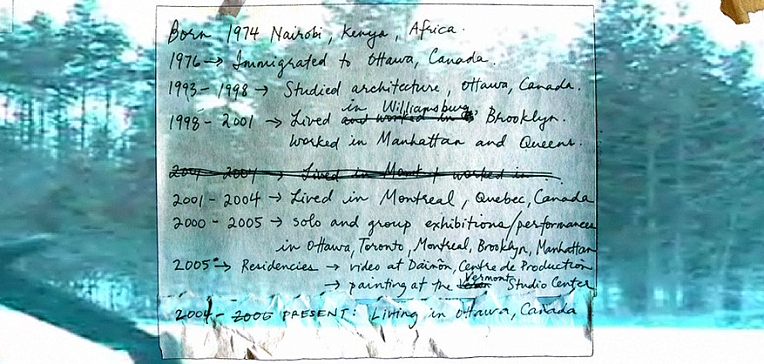 Born 1974 Nairobi, Kenya, Africa.
1976 → Immigrated to Ottawa, Canada.
1993 - 1998 → Studied architecture, Ottawa, Canada.
in Williamsburg
1998 - 2001 → Lived and worked in Brooklyn.
worked in Manhattan and Queens.
2001 - 2004 → Lived in Mont / worked in
2001 - 2004 → Lived in Montreal, Quebec, Canada
2000 - 2005 → solo and group exhibitions/performances
in Ottawa, Toronto, Montreal, Brooklyn, Manhattan
2005 → Residencies → video at Daimõn, Centre de Production
→ painting at the Vermont Studio Center
2004 - 2006 PRESENT: Living in Ottawa, Canada